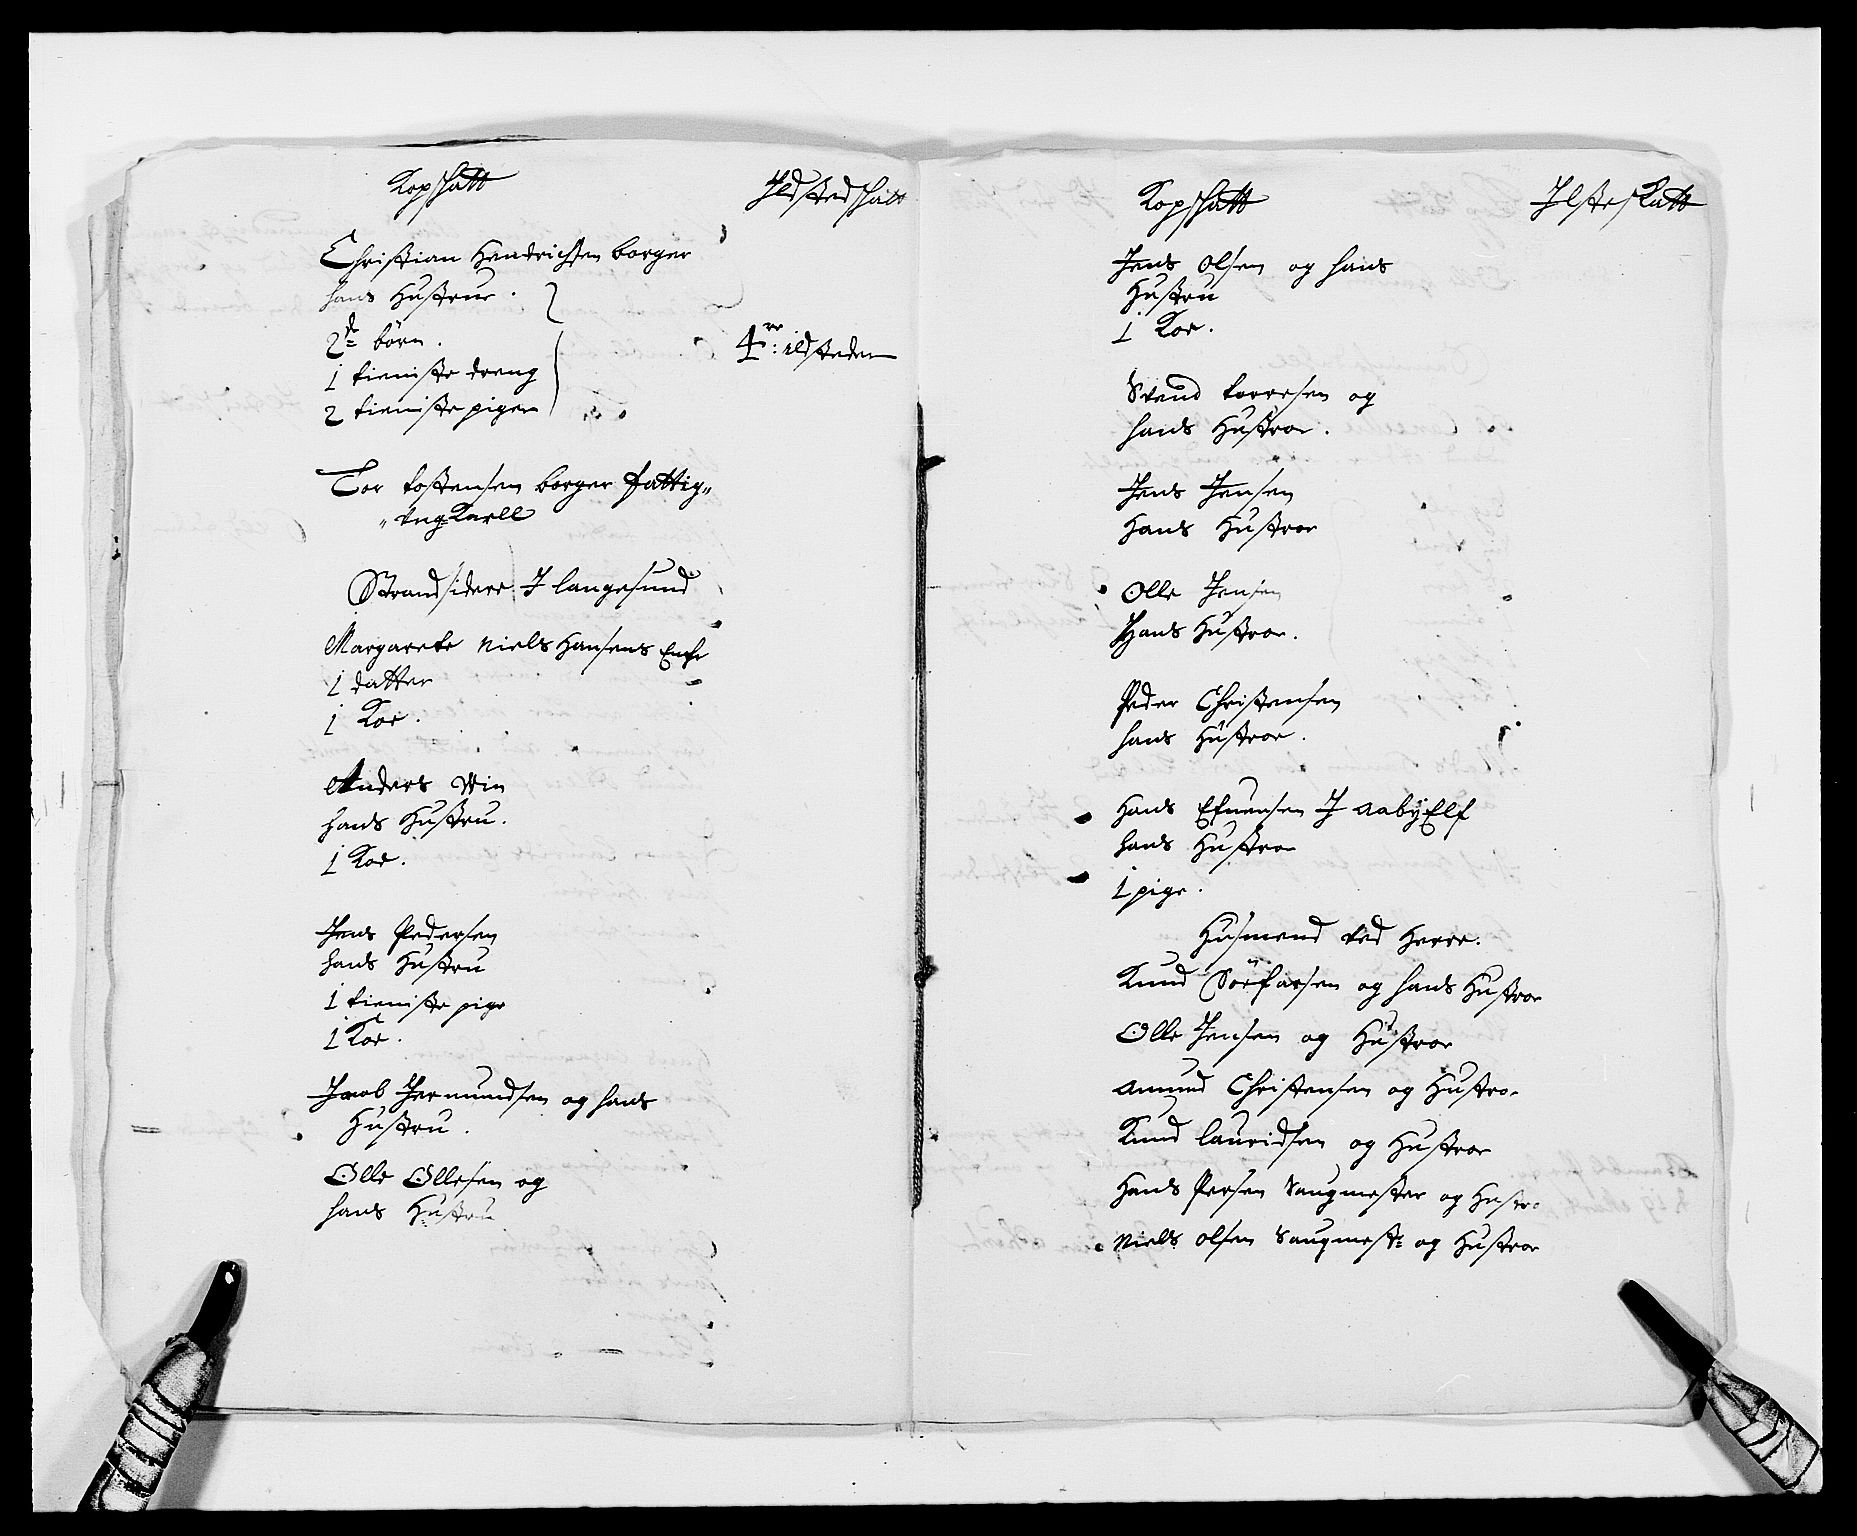 Kopschatt
Ildstedschatt
Christian Hendrichsen borger
hans Hustrue.
2de börn.
1 tieniste dreng
2 tieniste piger
4re: ildsteder
Tor tostensen borger fattig„
„ungKarll
Strandsidere J langesund
Margarete Niels Hansens Enke
1 datter
1 Koe.
Anders Win
hans Hustru.
1 Koe.
Jens Pedersen
hans Hustru
1 tieniste pige
1 Koe.
Jacob Jermundsen og hans
Hustru.
Olle Ollesen og
hans Hustru
Kopschatt
Ilsteskatt
Jens Olsen og hans
Hustru
1 Koe.
Svend torresen og
hans Hustroe.
Jens Jensen
Hans Hustroe
Olle Jensen
Hans Hustroe.
Peder Christensen
hans Hustroe.
Hans J AabyElf
hans Hustroe
1 pige.
Husmend ved Herre.
Knud og hans Hustroe
Olle Jensen og Hustroe
Amund Christensen og Hustro
Knud lauridsen og Hustroe
Hans Persen Saugmester og Hustro
Niels olsen Saugmest= og Hustroe